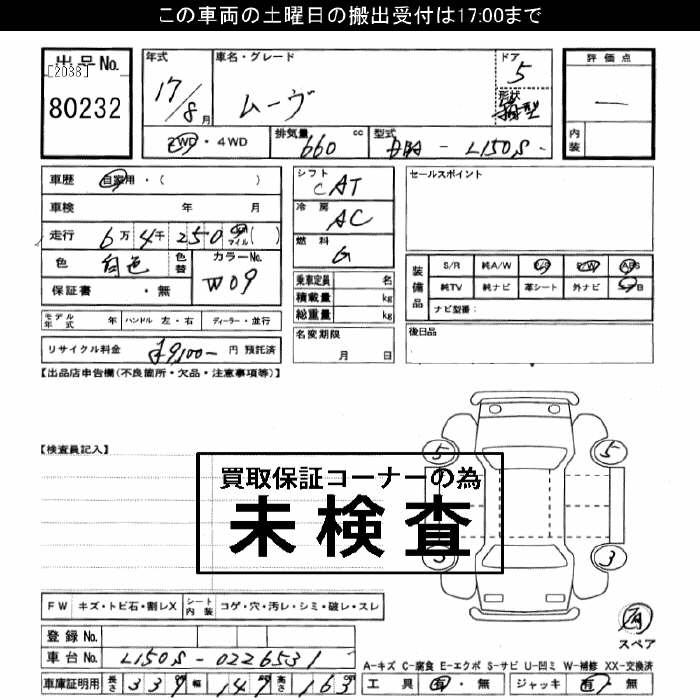 この車両の土曜日の搬出受付は17:00まで
出品No.
[2038]
80232
年式
17/8月
車名・グレード
ムーヴ
ドア
5
形状
箱型
評価点
―
内装
2WD・4WD
排気量
660 cc
型式
DBA - L150S -
車歴 自家用・( )
車検 年 月
走行 6万4千250 km マイル( )
色 白色 色替
カラーNo.
W09
保証書 ・無
モデル年式 年 ハンドル 左・右 ディーラー・並行
リサイクル料金 ¥9,100- 円 預託済
シフト
CAT
冷房
AC
燃料
G
乗車定員 名
積載量 kg
総重量 kg
名変期限
月 日
セールスポイント
装備品
S/R 純A/W P/S P/W ABS
純TV 純ナビ 革シート 外ナビ
ナビ型番:
後日品
【出品店申告欄(不良箇所・欠品・注意事項等)】
【検査員記入】
買取保証コーナーの為
未検査
5
5
3
3
FW キズ・トビ石・割レX シート内装 コゲ・穴・汚レ・シミ・破レ・スレ
登録No.
車台No. L150S-0226531
車庫証明用 長さ 339 幅 147 高さ 163
有
スペア
A-キズ C-腐食 E-エクボ S-サビ U-凹ミ W-補修 XX-交換済
工具 有・無 ジャッキ 有・無